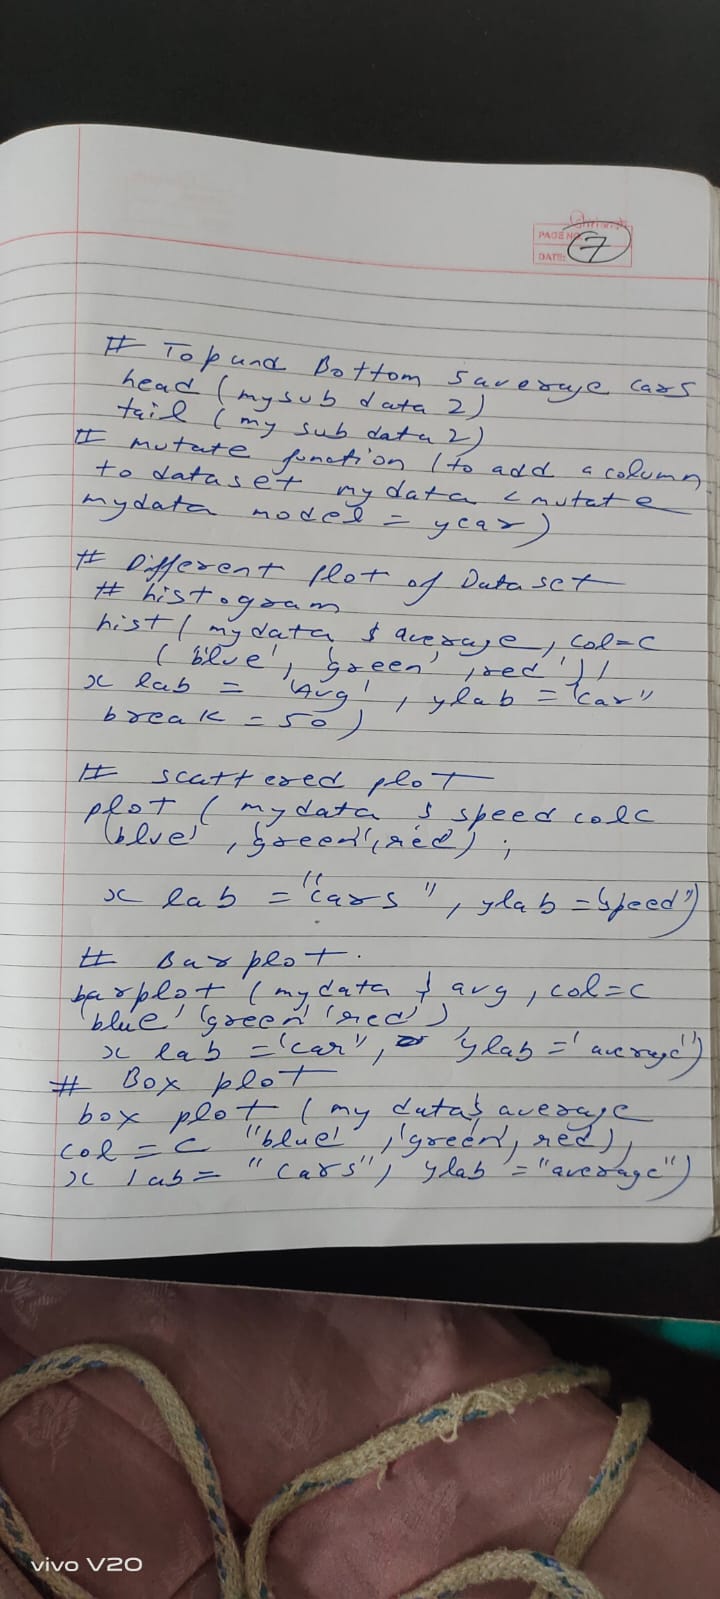 PAGE NO.
7
DATE:
# Top and Bottom 5 average cars
head (mysub data 2)
tail (my sub data 2)
# mutate function (to add a column
to dataset my data < mutate
mydata model = year)
# Different plot of Dataset
# histogram
hist ( mydata $ average, col=c
( 'blue', 'green', 'red' ) )
x lab = 'Avg', ylab = 'car"
break = 50 )
# scattered plot
plot ( mydata $ speed colc
(blue', 'green', red) ;
x lab = "cars", ylab = 'speed")
# Barplot.
barplot (mydata $ avg, col=c
'blue' 'green' 'red' ),
x lab = 'car", ylab = 'average')
# Box plot
box plot ( my data$ average
col = c "blue' , 'green', red),
x lab = "cars", ylab = "average")
vivo V20